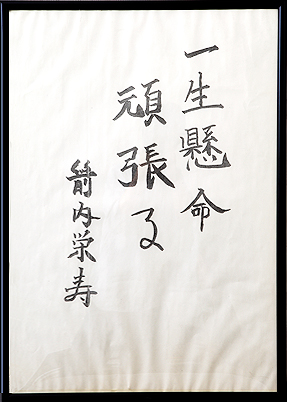 一生懸命
頑張る
箭内栄寿